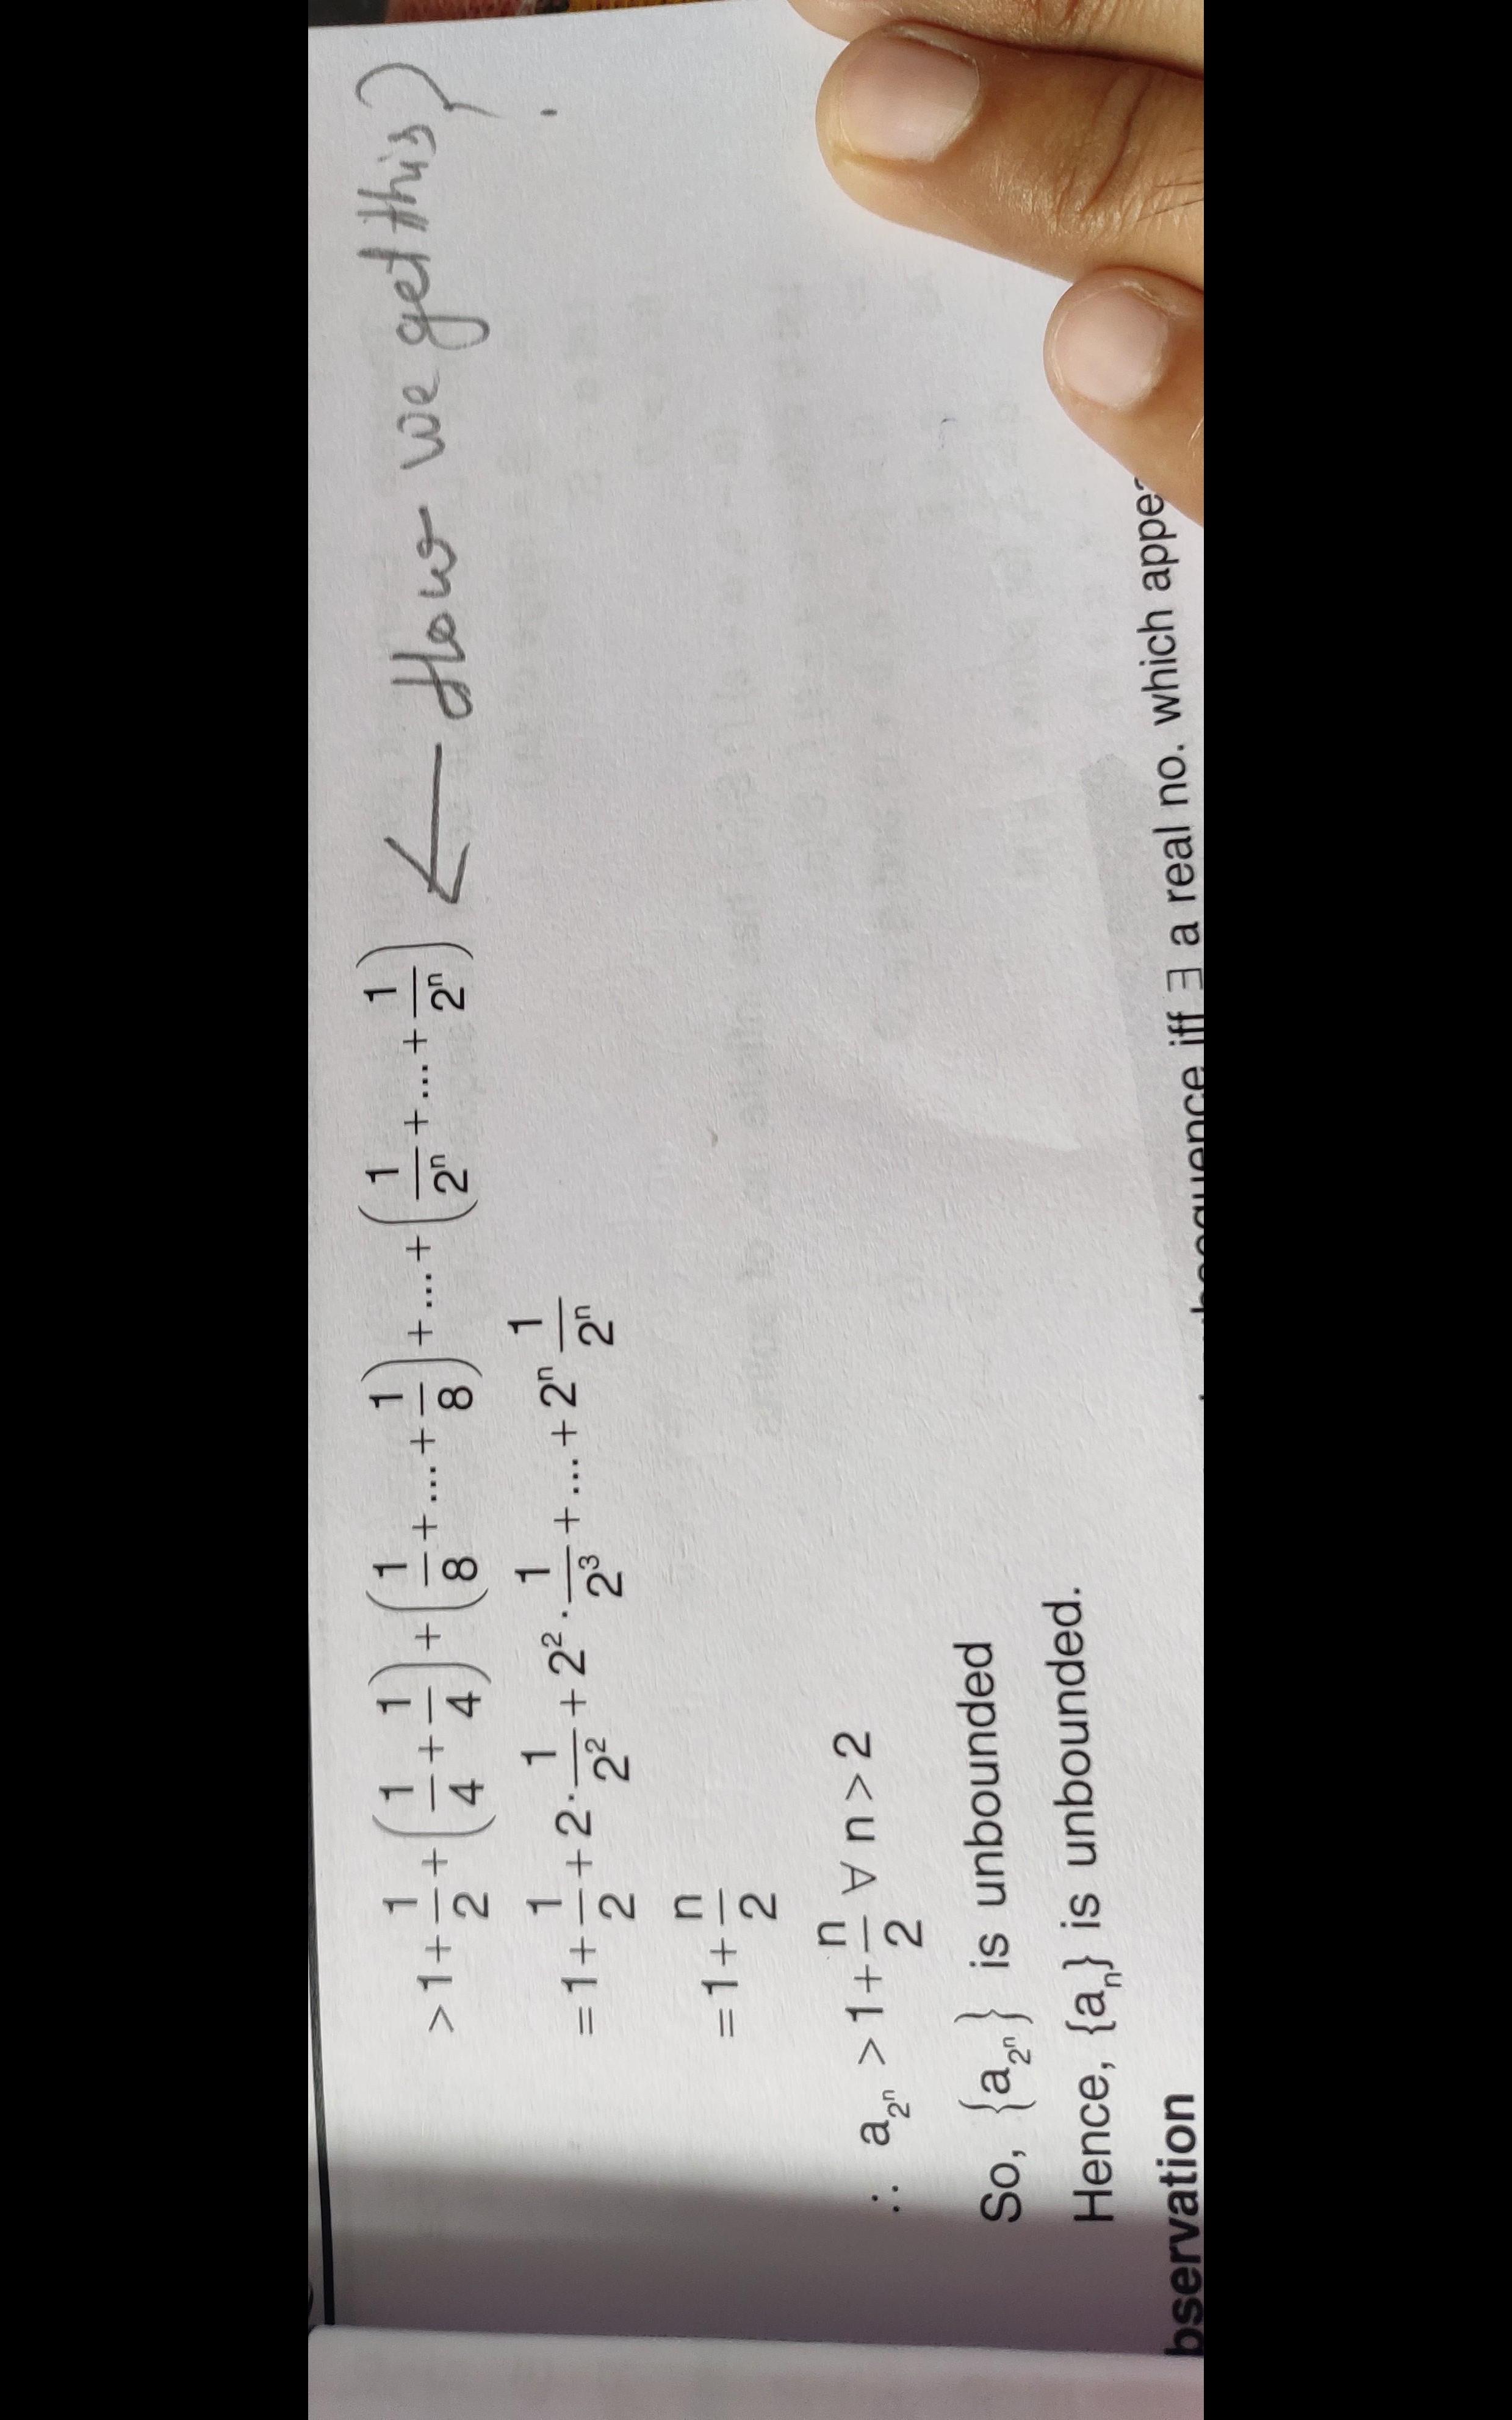 > 1 + 1/2 + (1/4 + 1/4) + (1/8 + .... + 1/8) + ... + (1/2ⁿ + .... + 1/2ⁿ) ← How we get this?
= 1 + 1/2 + 2 · 1/2² + 2² · 1/2³ + ... + 2ⁿ 1/2ⁿ
= 1 + n/2
∴ a_{2ⁿ} > 1 + n/2 ∀ n > 2
So, {a_{2ⁿ}} is unbounded
Hence, {aₙ} is unbounded.
bservation
sequence iff ∃ a real no. which appea